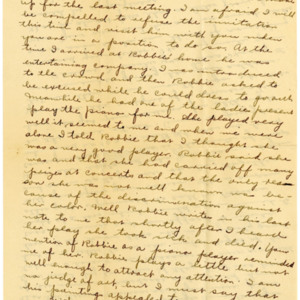 up for the last meeting. I am afraid I will
be compelled to refuse the invitation
this time and visit him with you when
you are in a position to do so. At the
time I arrived at Robbie' home he was
entertaining company. I was introduced
to the crowd and then Robbie asked to
be excused while he could dress for work
Meanwhile he had one of the ladies present
play the piano for me. She played very
well it seemed to me and when we were
alone I told Robbie that I thought she
was a very good player. Robbie said she
was and that she had carried off many
prizes at concerts and that the only rea-
son she was not well known be-
cause of the discrimination against
her color. Well Robbie writes in his last
note to me that shortly after I heard
her play she took sick and died. You
mention of Robbie as a piano player reminded
me of her. Robbie plays a little but not
well enough to attract any attention. I am
no judge of art but I must say that
his paintings appealed to